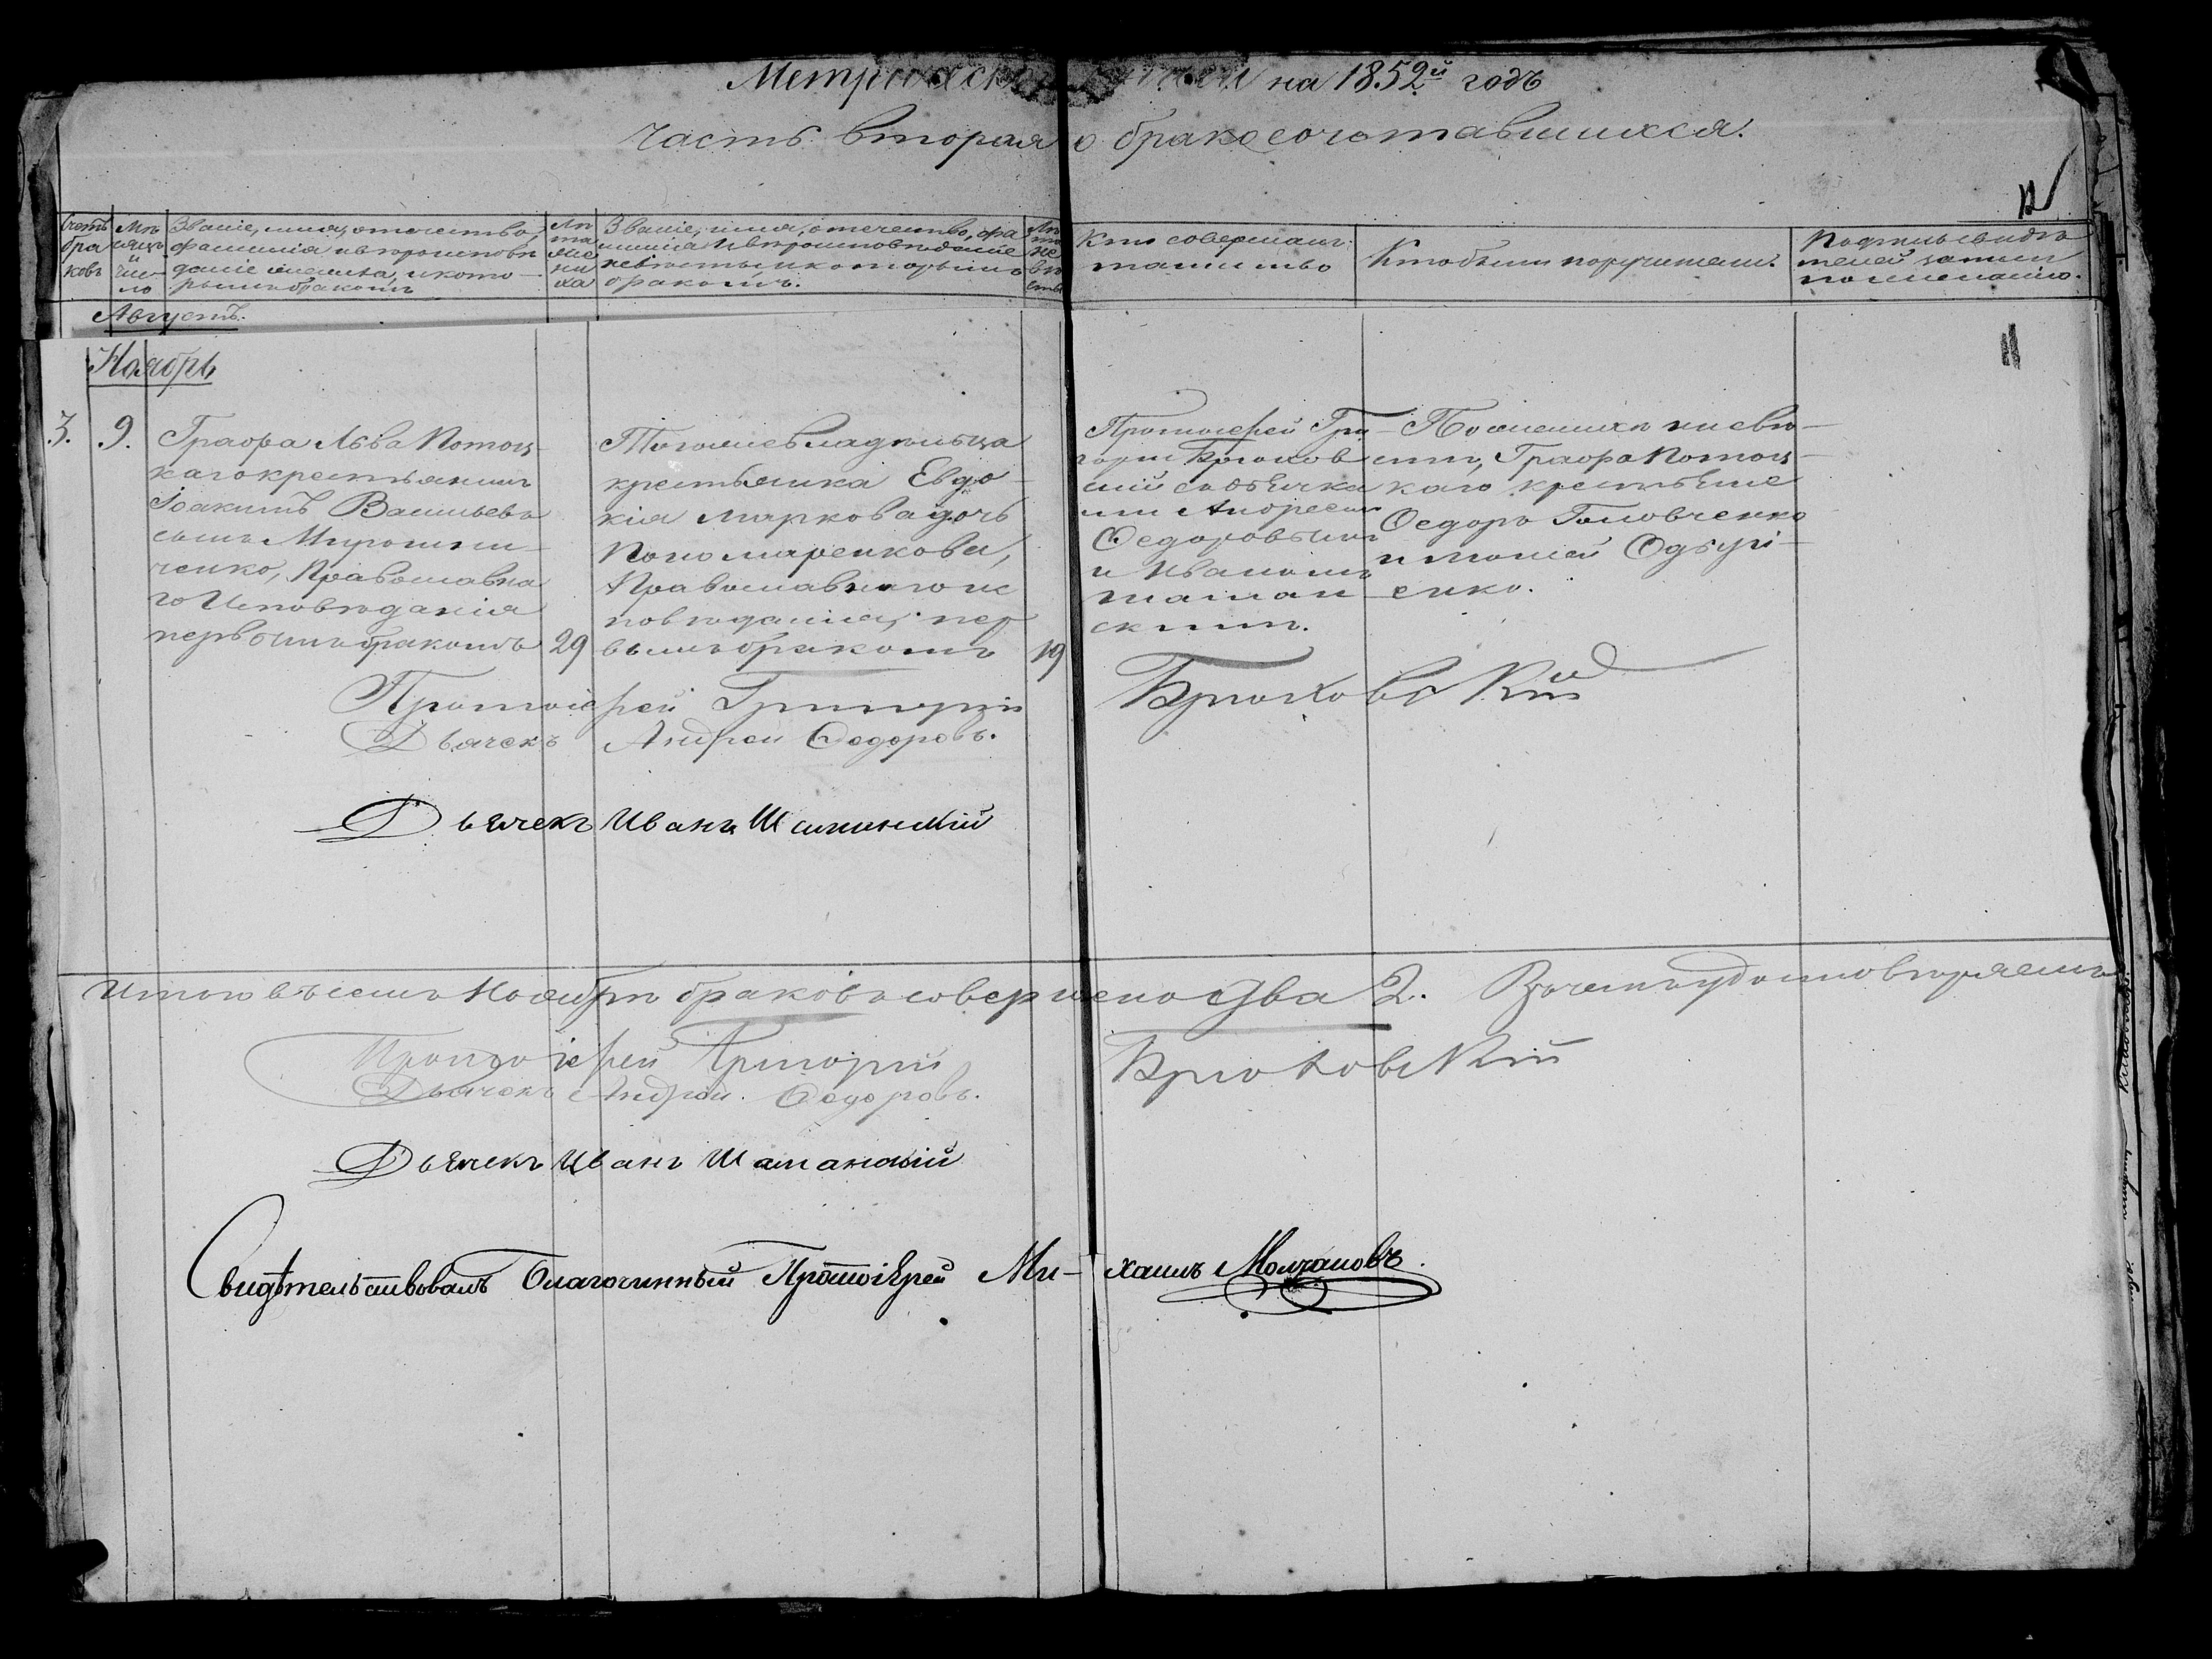 Метрической на 1852й годъ
Часть вторая о бракосочетавшихся.
12
Счетъ браковъ
Мѣсяцъ и число
Званіе, имя, отечество,
фамилія и вѣроисповѣ
даніе жениха, и кото-
рымъ бракомъ
Лѣта жениха
Званіе, имя, отечество, фа
милія и вѣроисповѣданіе
невѣсты и которымъ
бракомъ.
Лѣта невѣсты
Кто совершалъ
таинство
Кто были поручители.
Подпись свидѣ
телей записи
по желанію.
Августъ.
Ноябрь
11
3.
9.
Графа Льва Потоц-
каго крестьянинъ
Іоакимъ Васильевъ
сынъ Мирошни-
ченко, Православна
го Исповѣданія
первымъ бракомъ
29
Тогоже владѣльца
крестьянка Евдо-
кія Маркова дочь
Пономаренкова,
Православнаго ис
повѣданія, пер
вымъ бракомъ
19
Протоіерей Гри-
горій Брюков
скій съ дьячка
ми Андреемъ
Федоровымъ
и Иваномъ
Шаман
скимъ.
Графа Потоц-
каго крестьяне
Федоръ Головченко
и
енко.
Протоіерей Григорій Брюховскій
Дьячекъ Андрей Федоровъ.
Дьячекъ Иванъ Шаманскій
Итого въ семъ Ноябрѣ браковъ совершено Два 2. В чемъ удостовѣряемъ
Протоіерей Григорій Брюховскій
Дьячекъ Андрей Федоровъ.
Дьячекъ Иванъ Шаманскій
Свидѣтельствовалъ Благочинный Протоіерей Ми-хаилъ Молчановъ.